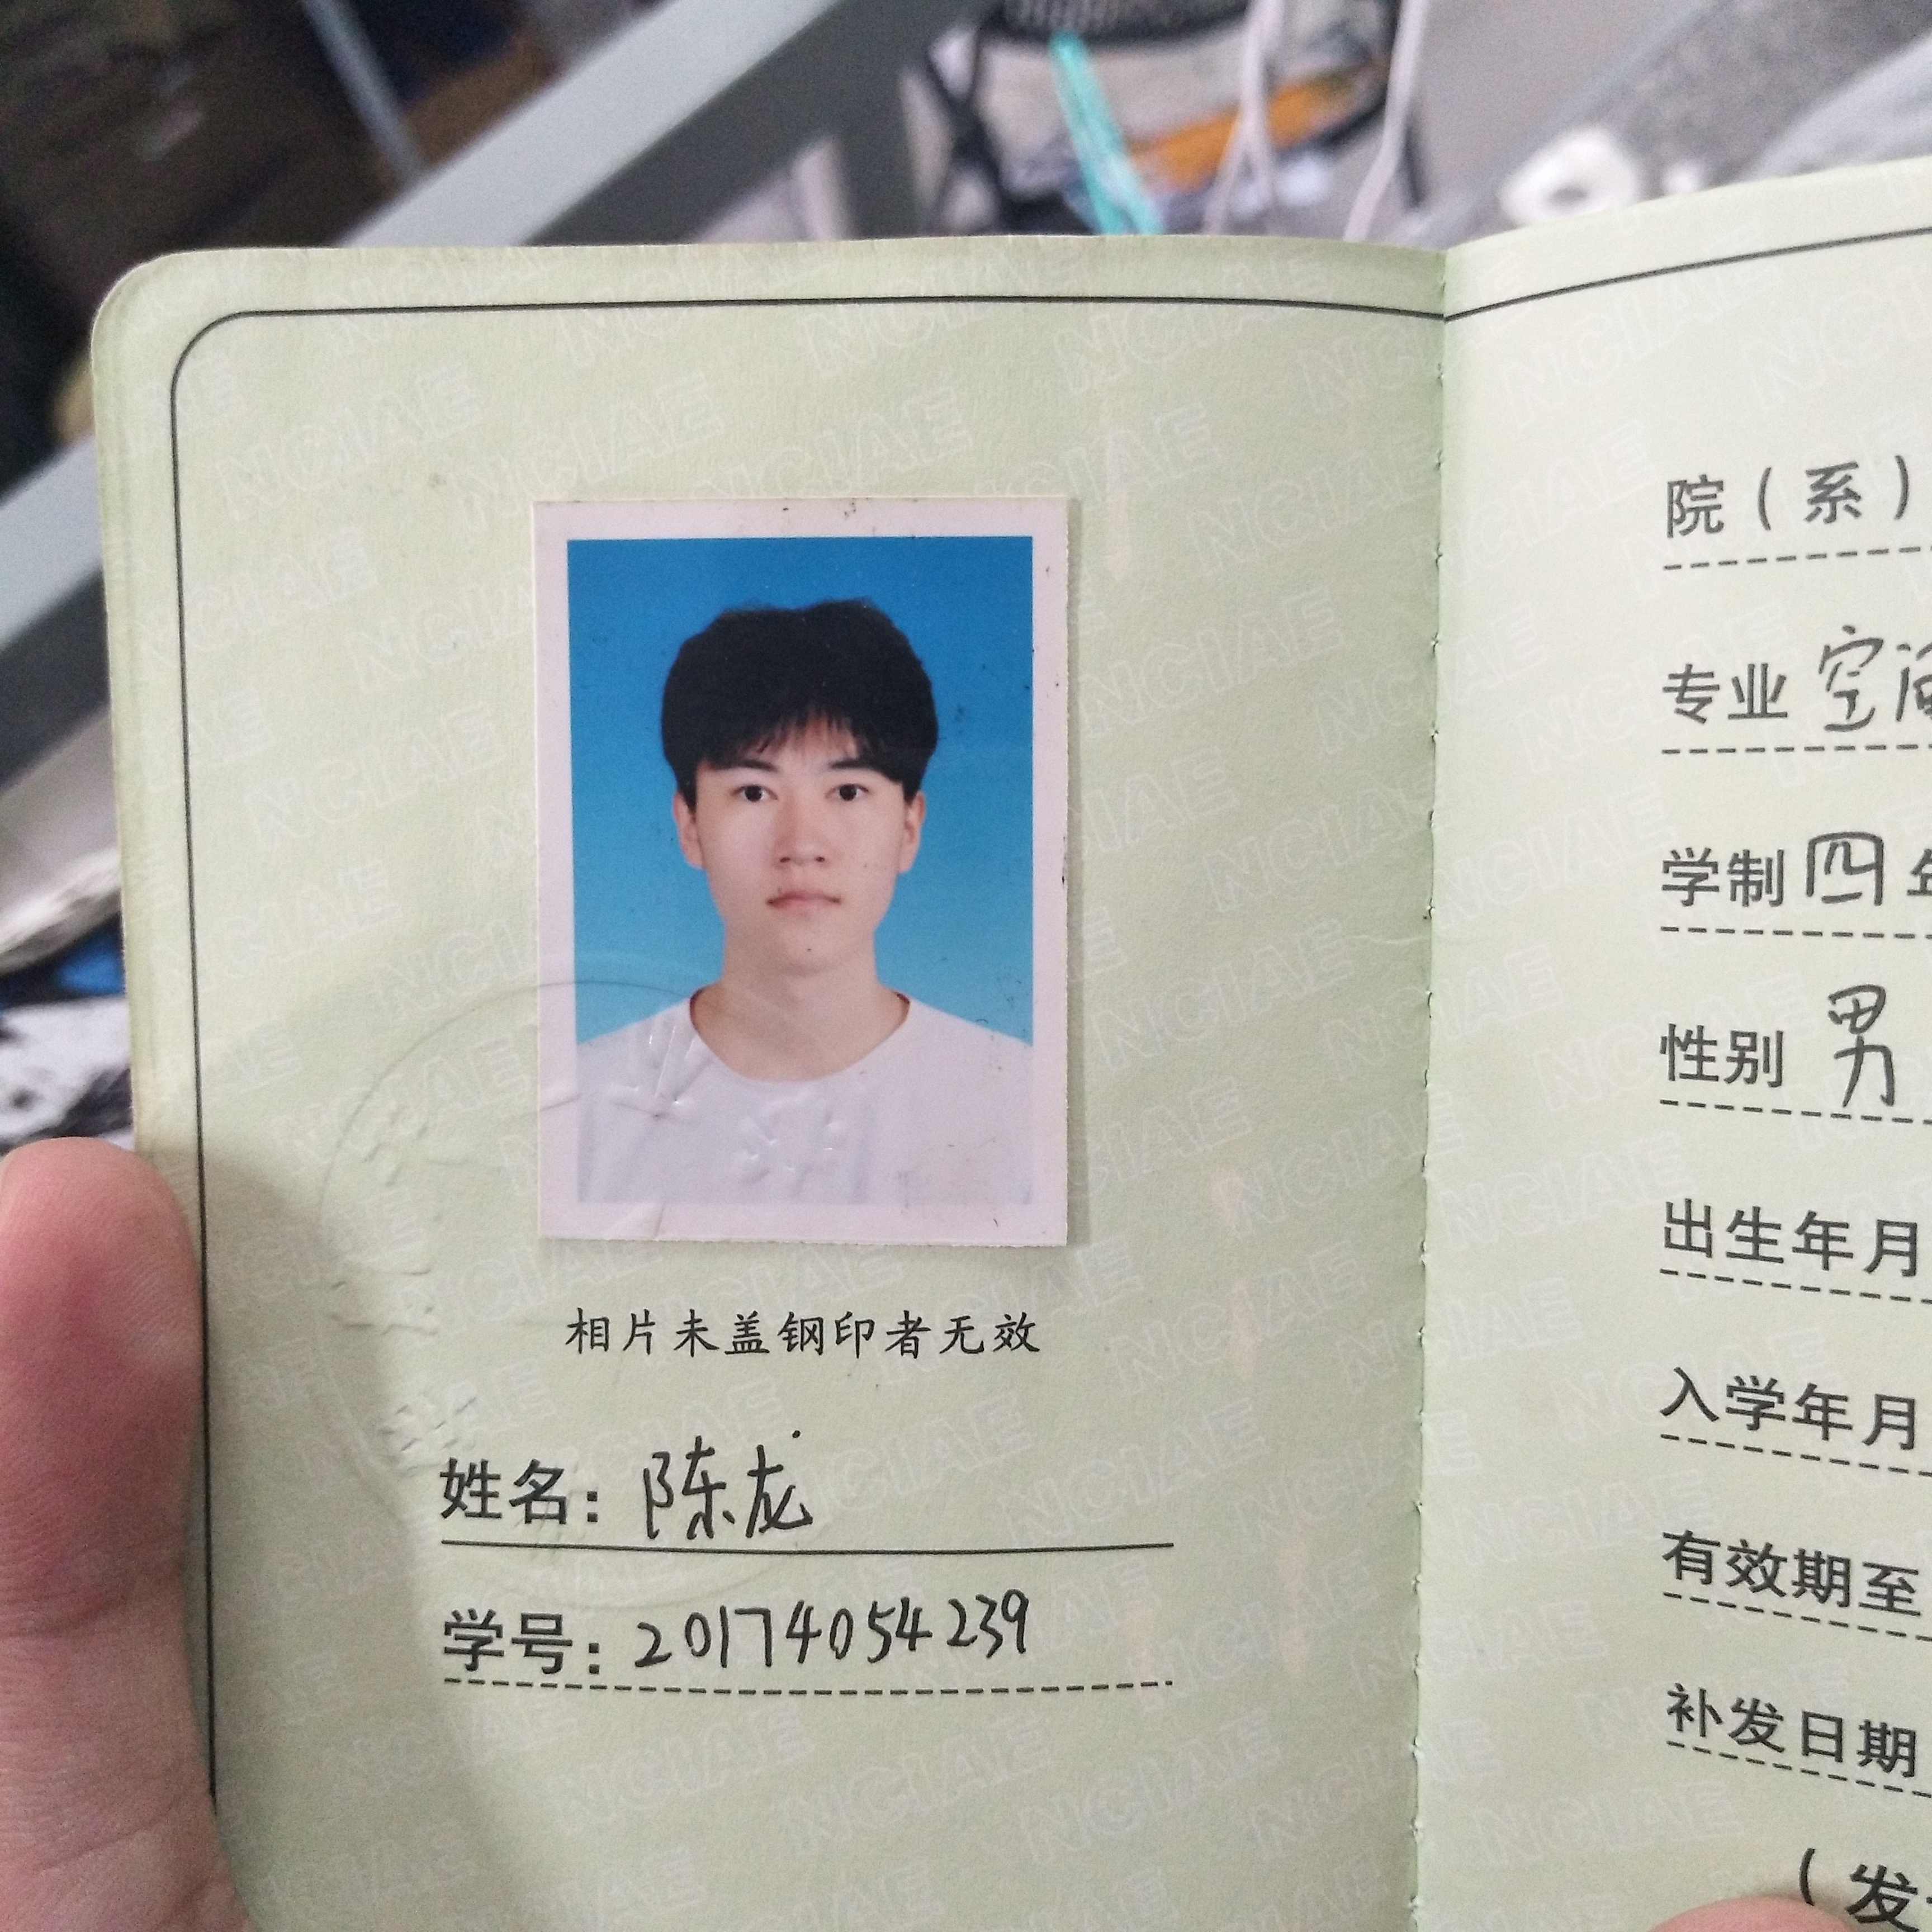 相片未盖钢印者无效
姓名：陈龙
学号：20174054239
院（系）
专业 空间
学制 四年
性别 男
出生年月
入学年月
有效期至
补发日期
（发
NCIAE